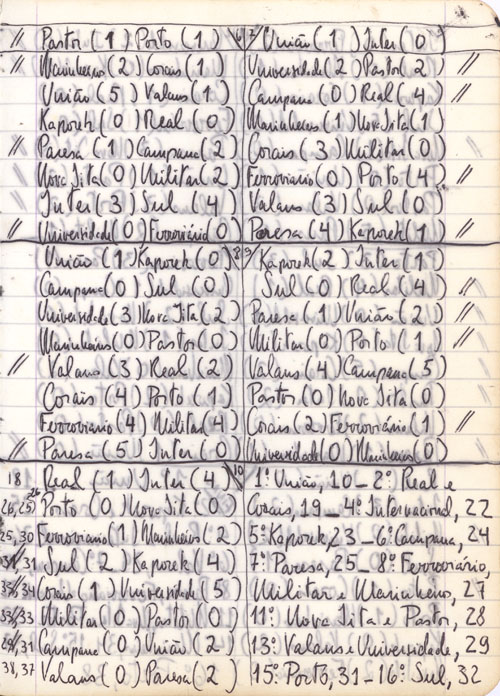 // Pastor (1) Porto (1) 6
// Marinheiros (2) Corais (1)
União (5) Valans (1)
Kaporek (0) Real (0)
// Paresa (1) Campana (2)
// Nova Jita (0) Militar (2)
// Inter (3) Sul (4)
// Universidade (0) Ferroviário (0)
7 União (1) Inter (0)
Universidade (2) Pastor (2) //
Campana (0) Real (4) //
Marinheiros (1) Nova Jita (1)
Corais (3) Militar (0)
Ferroviário (0) Porto (4) //
Valans (3) Sul (0)
Paresa (4) Kaporek (1) //
União (1) Kaporek (0) 8
Campana (0) Sul (0)
Universidade (3) Nova Jita (2)
Marinheiros (0) Pastor (0)
// Valans (3) Real (2)
Corais (4) Porto (1)
Ferroviario (4) Militar (4)
// Paresa (5) Inter (0)
9 Kaporek (2) Inter (1)
Sul (0) Real (4) //
Paresa (1) União (2) //
Militar (0) Porto (1) //
Valans (4) Campana (5)
Pastor (0) Nova Jita (0)
Corais (2) Ferroviário (1) //
Universidade (0) Marinheiros (0)
18 Real (1) Inter (4) 10
Porto (0) Nova Jita (0)
25, 30 Ferroviario (1) Marinheiros (2)
31 Sul (2) Kaporek (4)
34 Corais (1) Universidade (5)
33 Militar (0) Pastor (0)
31 Campana (0) União (2)
38, 37 Valans (0) Paresa (2)
1º: União, 10 – 2º: Real e
Corais, 19 – 4º: Internacional, 22
5º: Kaporek, 23 – 6º: Campana, 24
7º: Paresa, 25 – 8º: Ferroviário,
Militar e Marinheiro, 27
11º: Nova Jita e Pastor, 28
13º: Valans e Universidade, 29
15º: Porto, 31 – 16º: Sul, 32